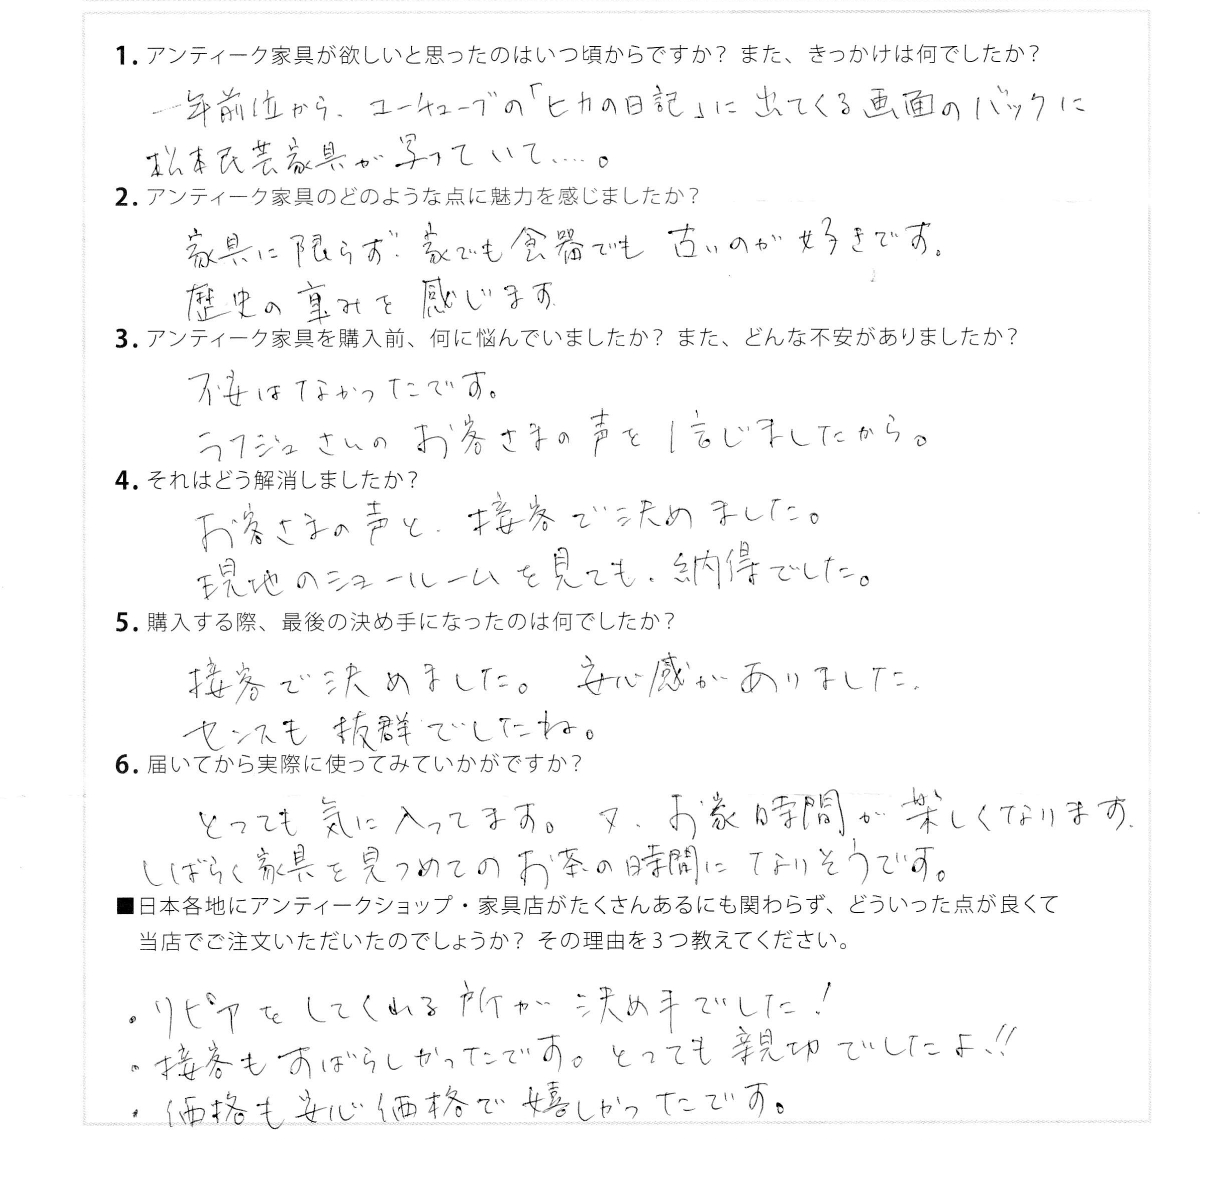 1. アンティーク家具が欲しいと思ったのはいつ頃からですか? また、きっかけは何でしたか?
一年前位から、ユーチューブの「ヒカの日記」に出てくる画面のバックに
松本民芸家具が写っていて.....。
2. アンティーク家具のどのような点に魅力を感じましたか?
家具に限らず、家でも食器でも古いのが好きです。
歴史の重みを感じます
3. アンティーク家具を購入前、何に悩んでいましたか? また、どんな不安がありましたか?
不安はなかったです。
ラフジュさんのお客さまの声を信じましたから。
4. それはどう解消しましたか?
お客さまの声と、接客で決めました。
現地のショールームを見ても、納得でした。
5. 購入する際、最後の決め手になったのは何でしたか?
接客で決めました。安心感がありました、
センスも抜群でしたね。
6. 届いてから実際に使ってみていかがですか?
とっても気に入ってます。又、お家時間が楽しくなります、
しばらく家具を見つめてのお茶の時間になりそうです。
■日本各地にアンティークショップ・家具店がたくさんあるにも関わらず、どういった点が良くて
当店でご注文いただいたのでしょうか? その理由を3つ教えてください。
・リピアをしてくれる所が決め手でした!
・接客もすばらしかったです。とっても親切でしたよ!!
・価格も安心価格で嬉しかったです。